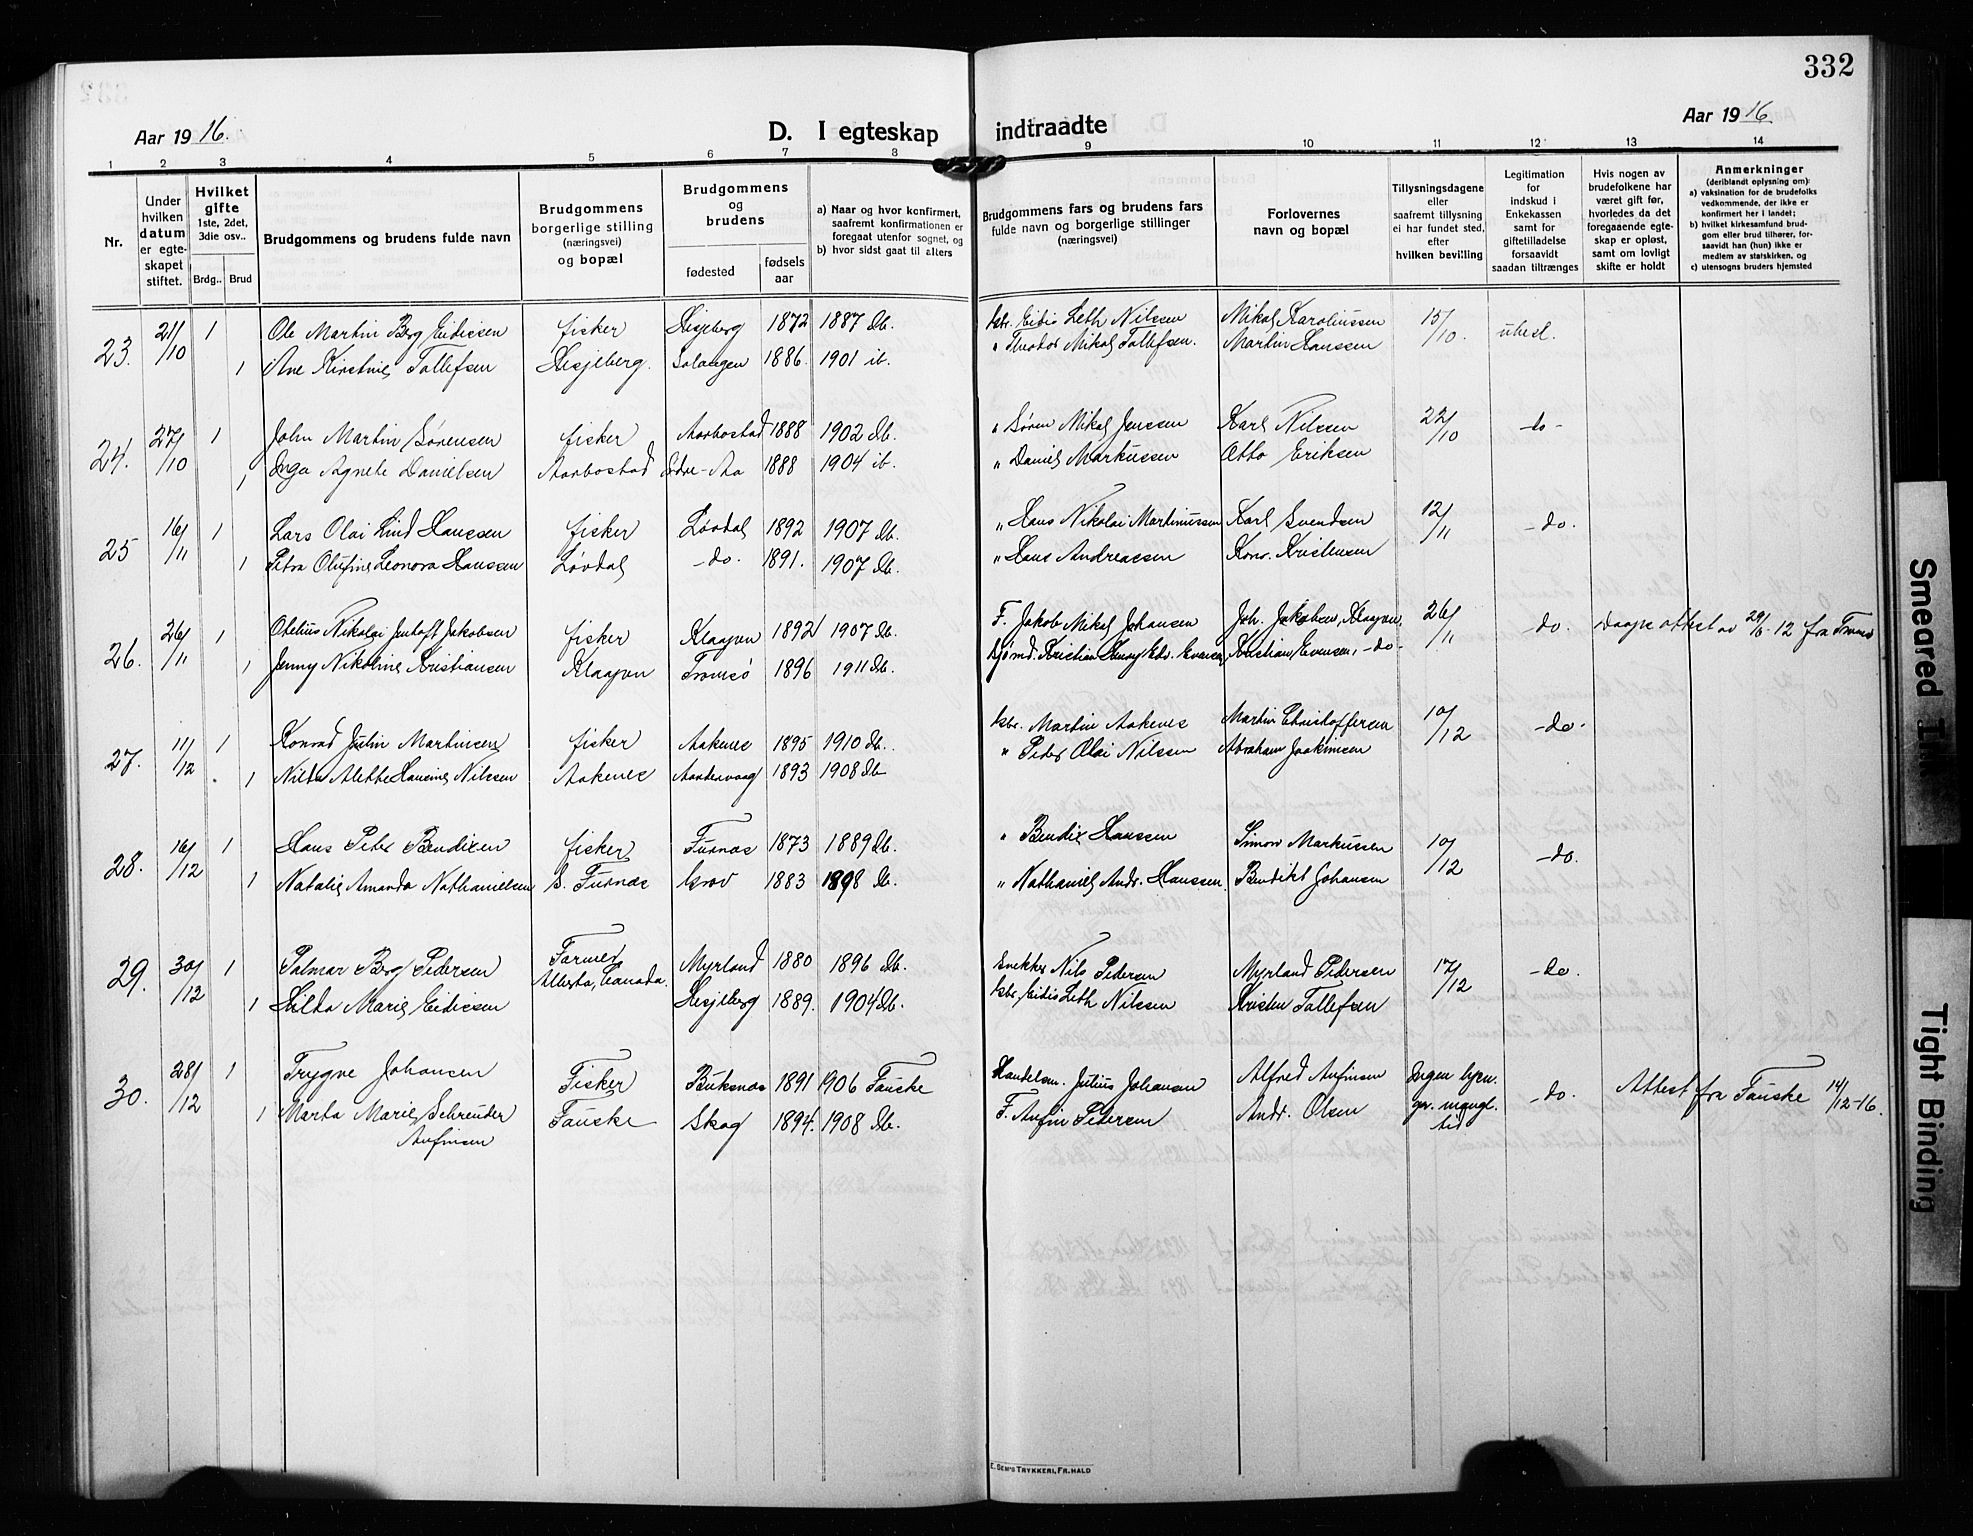 332
Aar 1916.
D. I egteskap indtraadte
Aar 1916
1 2 3 4 5 6 7 8 9 10 11 12 13 14
Nr.
Under hvilken datum er egteskapet stiftet.
Hvilket gifte 1ste, 2det, 3die osv..
Brdg.. Brud
Brudgommens og brudens fulde navn
Brudgommens borgerlige stilling (næringsvei) og bopæl
Brudgommens og brudens
fødested
fødsels aar
a) Naar og hvor konfirmert, saafremt konfirmationen er foregaat utenfor sognet, og
b) hvor sidst gaat til alters
Brudgommens fars og brudens fars fulde navn og borgerlige stillinger (næringsvei)
Forlovernes navn og bopæl
Tillysningsdagene eller saafremt tillysning ei har fundet sted, efter hvilken bevilling
Legitimation for indskud i Enkekassen samt for giftetilladelse forsaavidt saadan tiltrænges
Hvis nogen av brudefolkene har været gift før, hvorledes da det foregaaende egteskap er opløst, samt om lovligt skifte er holdt
Anmerkninger (deriblandt oplysning om):
a) vaksination for de brudefolks vedkommende, der ikke er konfirmert her i landet;
b) hvilket kirkesamfund brudgom eller brud tilhører, forsaavidt han (hun) ikke er medlem av statskirken, og
c) utensogns bruders hjemsted
23. 21/10 1 Ole Martin Berg Eidissen fisker Hesjeberg 1872 1887 Ib. kbr. Eidis Leth Nilssen Mikal Karoliussen 15/10. ubest.
1 Ane Kirstine Tollefsen Hesjeberg. Salangen 1886. 1901 ib. " Theodor Mikal Tollefsen. Martin Hanssen
24. 27/10 1 John Martin Sørensen fisker Aarbostad 1888 1902 Ib. " Søren Mikal Jenssen Karl Nilssen 22/10 -do-
1 Inga Agnete Danielsen Aarbostad Søndre-Aa 1888 1904 ib. " Daniel Markussen Otto Eriksen
25 16/11 1 Lars Olai Lind Hanssen fisker Løvdal 1892 1907 Ib. " Hans Nikolai Martinussen Karl Svendsen 12/11 -do.
1 Petra Olufine Leonora Hanssen Løvdal -do. 1891. 1907 Ib. " Hans Andreassen Konr. Kristensen
26. 26/11 1 Otelius Nikolai Jentoft Jakobsen fisker Klaapen 1892 1907 Ib. F. Jakob Mikal Johansen Joh. Jakobsen, Klaapen 26/11 -do. daapsattest av 29/6-12 fra Tromsø
1 Jenny Nikoline Kristiansen Klaapen Tromsø 1896 1911 Ib. Sjømd. Kristian Henry Edv. Evensen Kristian Evensen, -do-
27. 11/12 1 Konrad Julin Martinsen fisker Aakenes 1895 1910 Ib. kbr. Martin Aakenes Martin Christoffersen 10/12 -do-
1 Nilda Alethe Hansine Nilssen Aakenes Aandervaag 1893 1908 Ib " Peder Olai Nilssen Abraham Joakimsen
28. 16/12 1 Hans Peter Bendixen fisker Furnes 1873 1889 Ib. " Bendix Hanssen Simon Markussen 10/12 -do.
1 Natalie Amanda Nathanielsen S. Furnes Grov 1883 1898 Ib. " Nathaniel Andr. Hanssen. Bendikt Johansen
29. 30/12 1 Palmar Berg Pedersen Farmer Alberta, Canada. Myrland 1880 1896 Ib. Snekker Nils Pedersen Myrland Pedersen 17/12 -do.
1 Hilda Marie Eidissen Hesjeberg 1889. 1904 Ib. kbr. Eidis Leth Nilssen Kristen Tollefsen
30. 28/12 1 Trygve Johansen Fisker Buksnes 1891 1906 Fauske Handelsm. Julius Johansen Alfred Anfinsen Ingen lysn. gr. mangl. tid -do. Attest fra Fauske 14/12-16.
1 Marta Marie Schreuder Anfinsen Fauske Skog 1894. 1908 Ib. F. Anfin Pedersen Andr. Olsen
E. SEM'S TRYKKERI, FR.HALD
Smeared Ink
Tight Binding